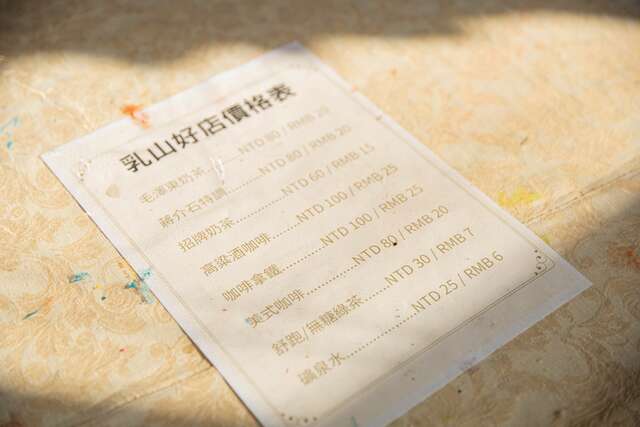 乳山好店價格表
毛澤東奶茶......NTD 80 / RMB 20
蔣介石特調......NTD 80 / RMB 20
招牌奶茶......NTD 60 / RMB 15
高粱酒咖啡......NTD 100 / RMB 25
咖啡拿鐵......NTD 100 / RMB 25
美式咖啡......NTD 80 / RMB 20
舒跑/無糖綠茶......NTD 30 / RMB 7
礦泉水......NTD 25 / RMB 6